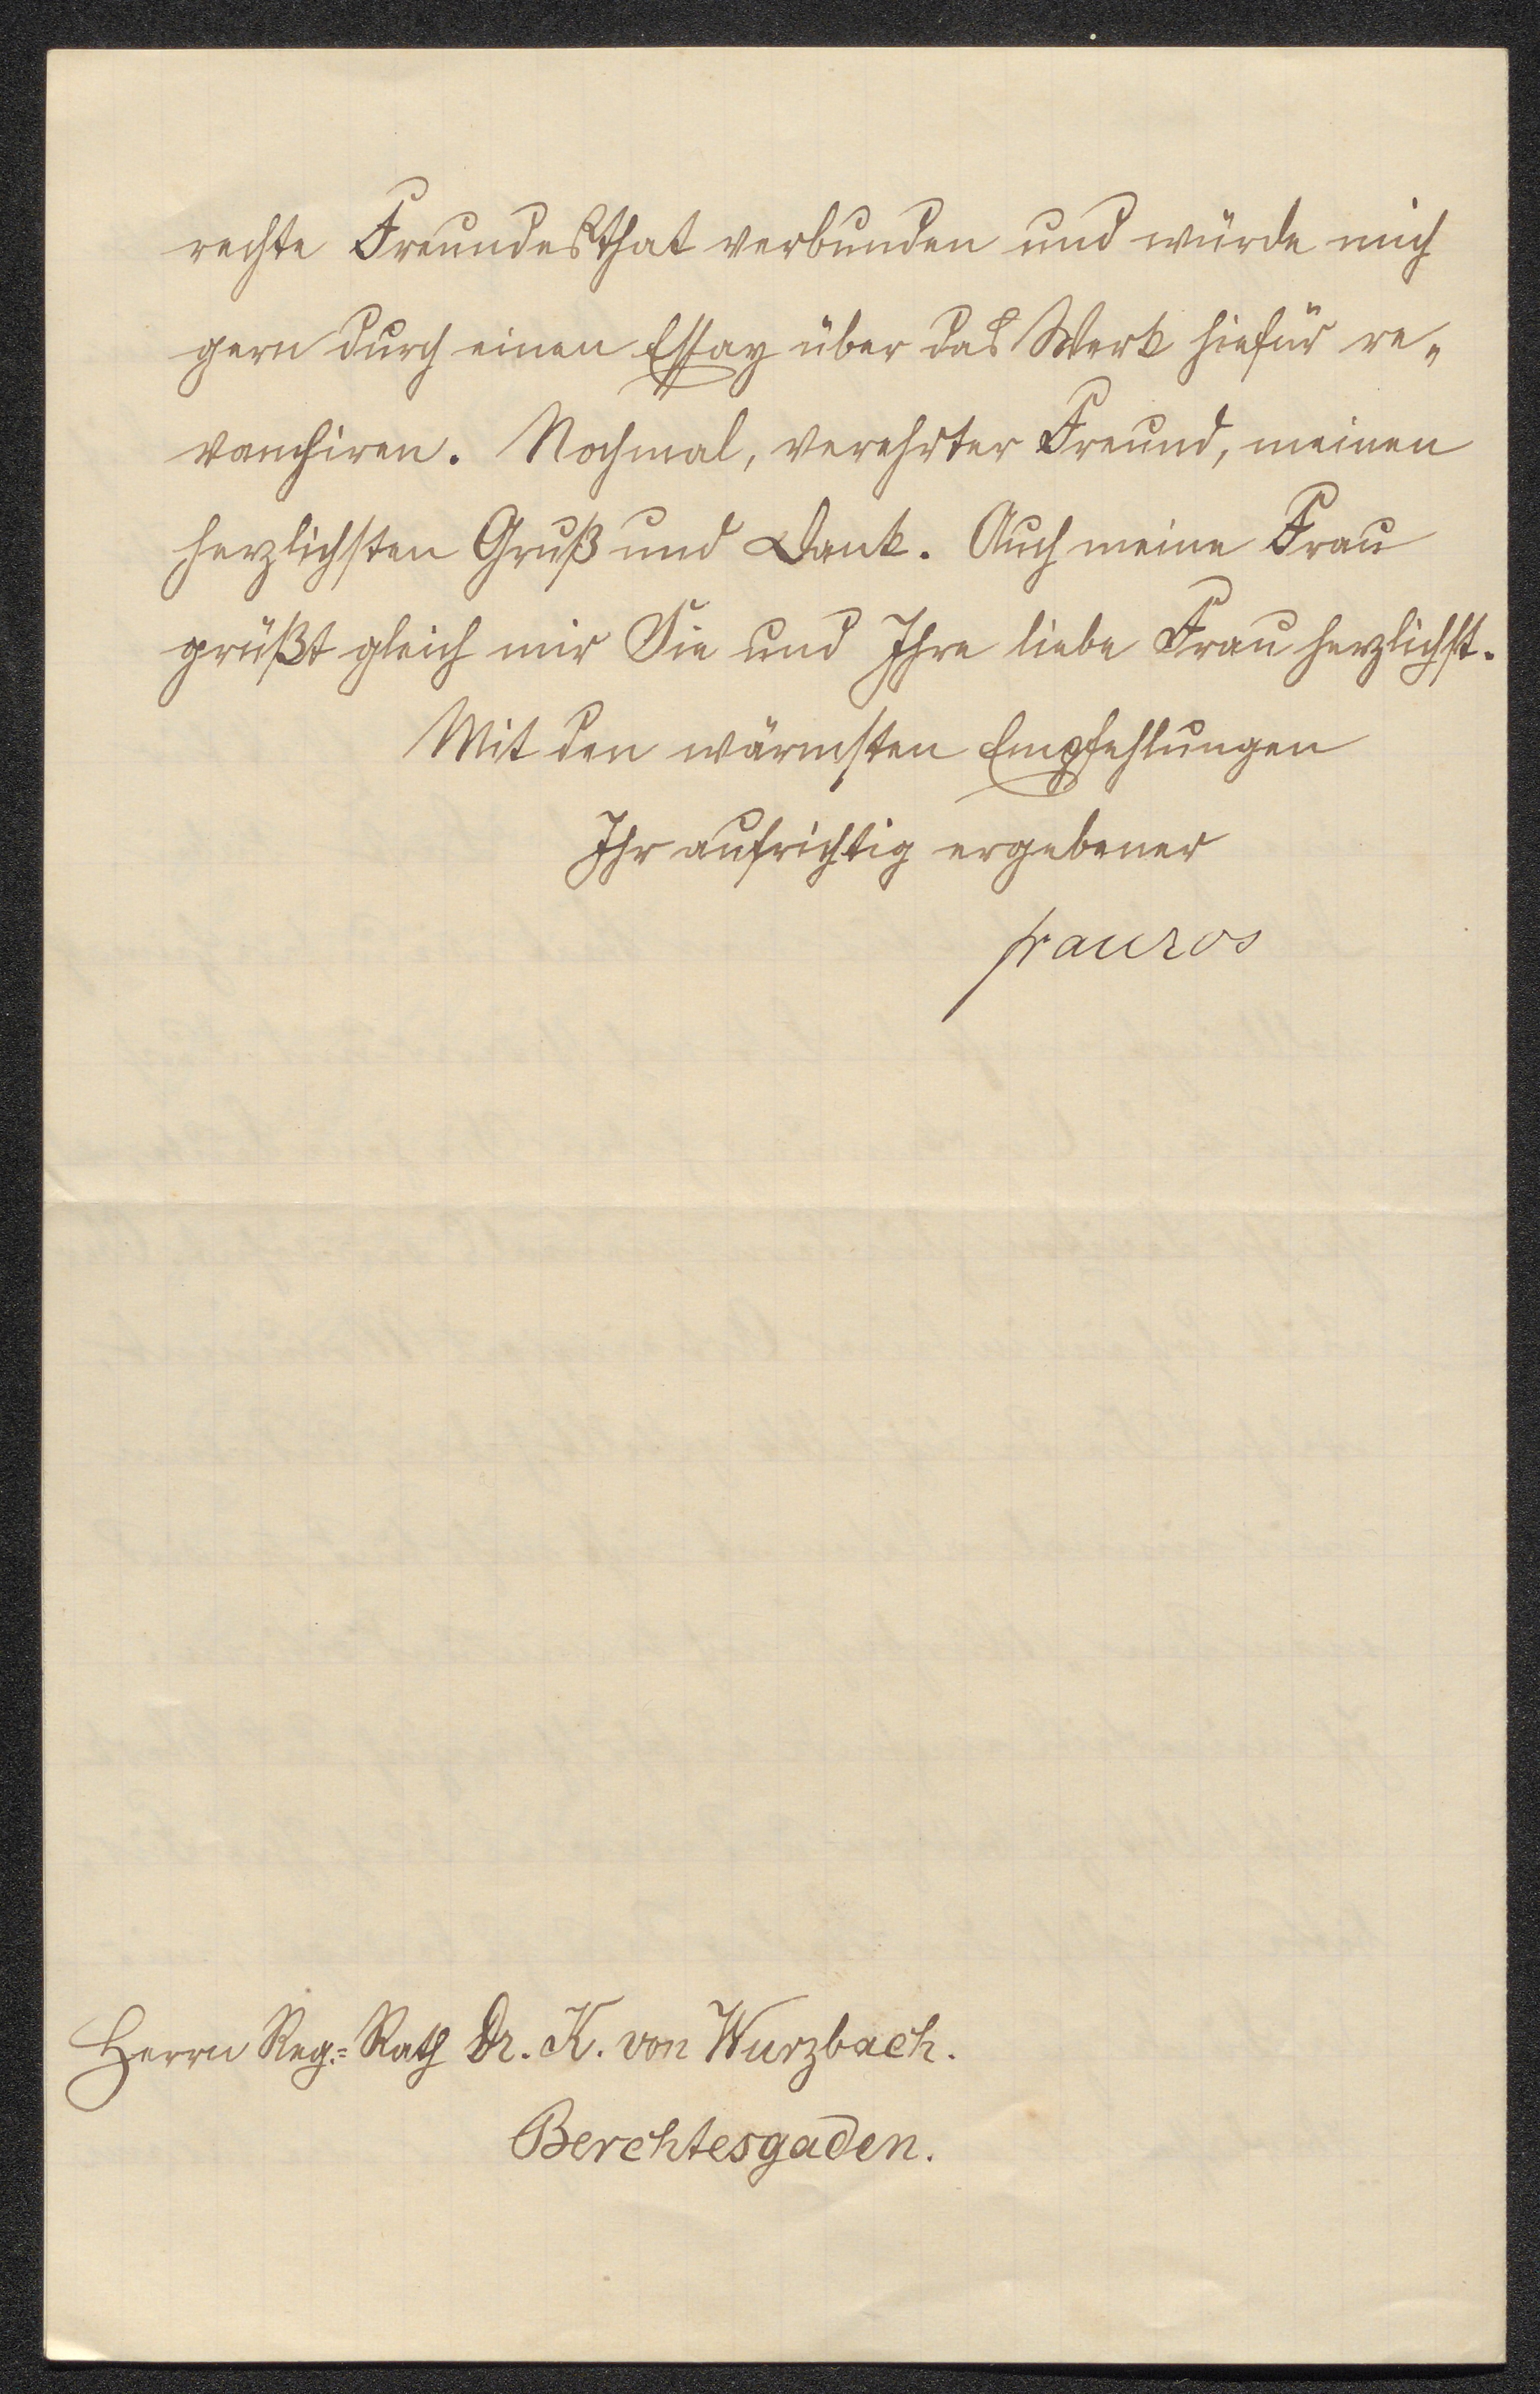 rechte Freundesthat verbunden und würde mich
gern durch einen Essay über das Werk hiefür re„
vanchiren. Nochmal, verehrter Freund, meinen
herzlichsten Gruß und Dank. Auch meine Frau
grüßt gleich mir Sie und Ihre liebe Frau herzlichst.
Mit den wärmsten Empfehlungen
Ihr aufrichtig ergebener
Herrn Reg.= Rath Dr. K. von Wurzbach.
Berchtesgaden.